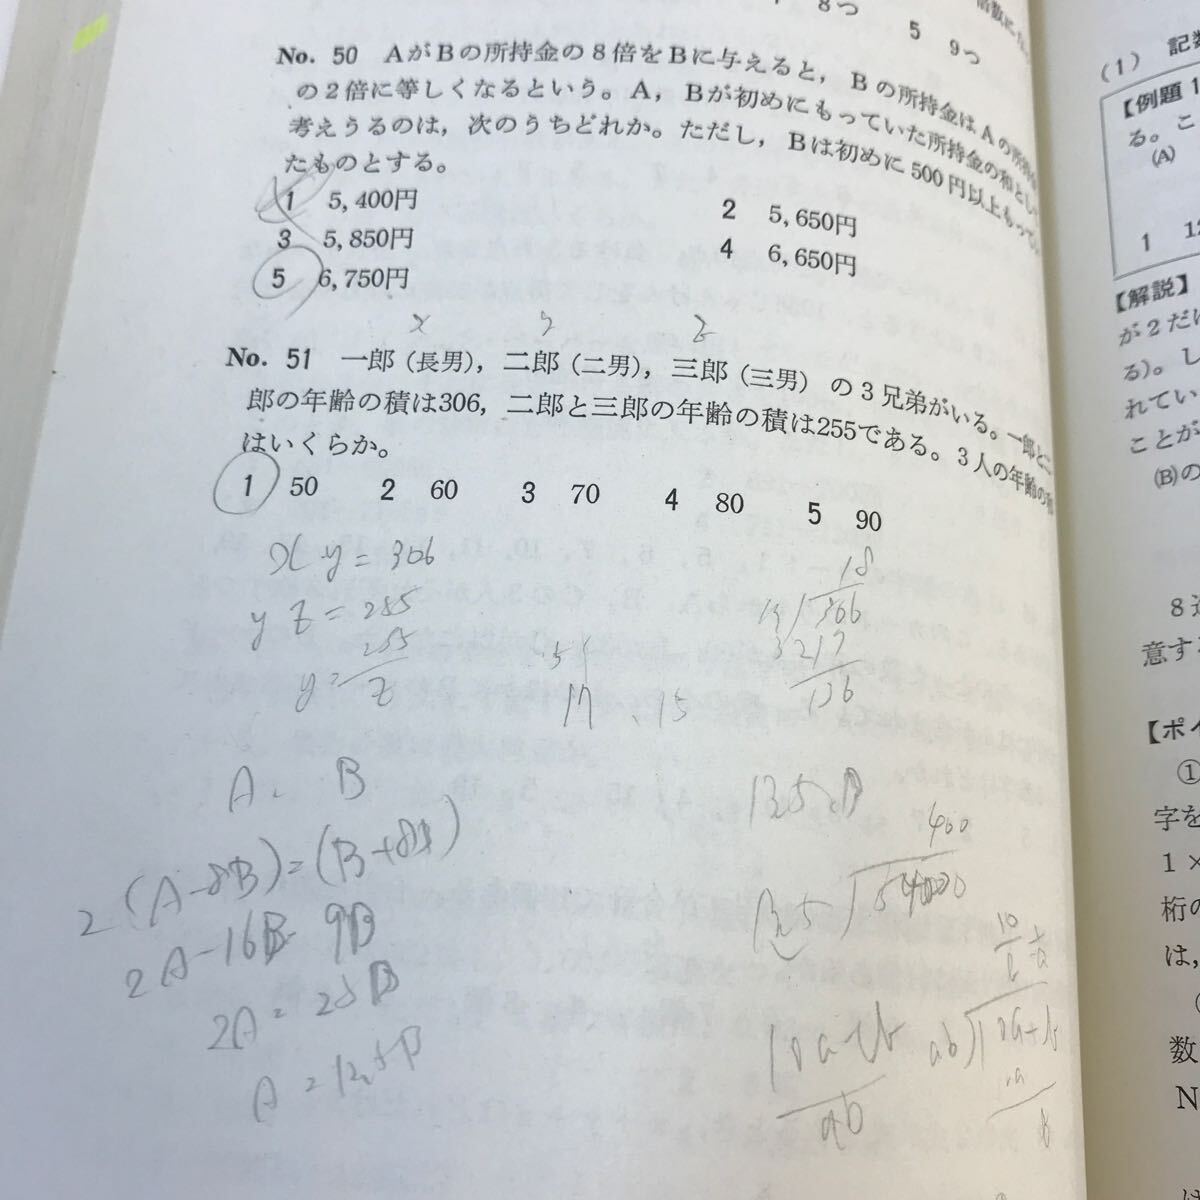 8つ 5 9つ
No. 50 AがBの所持金の8倍をBに与えると，Bの所持金はAの所持金
の2倍に等しくなるという。A，Bが初めにもっていた所持金の和として
考えうるのは，次のうちどれか。ただし，Bは初めに500円以上もってい
たものとする。
1 5,400円 2 5,650円
3 5,850円 4 6,650円
5 6,750円
x y z
No. 51 一郎（長男），二郎（二男），三郎（三男）の3兄弟がいる。一郎と二
郎の年齢の積は306，二郎と三郎の年齢の積は255である。3人の年齢の和
はいくらか。
1 50 2 60 3 70 4 80 5 90
xy=306
yz=255
y=255/z
17 15
18
306
17
136
A. B
2(A-8B)=(B+8B)
2A-16B=9B
2A=25B
A=12.5B
400
ab
(1) 記数
【例題1
る。こ
(A)
1 12
【解説】
が2だけ
る)。し
れてい
ことが
(B)の
8進
意する
【ポイ
①
字を
1×
桁の
は，
数
N